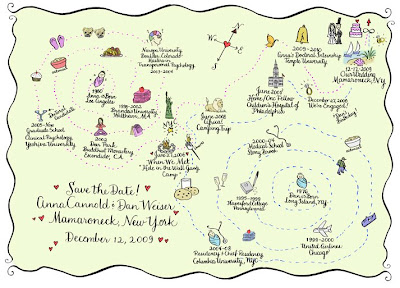 Naropa University
Boulder, Colorado
Masters in
Transpersonal Psychology
2003-2005
W
N
S
E
2009-2010
Anna's Doctoral Internship
Temple University
12-12-2009
Our Wedding
Mamaroneck, NY
1980
Anna is Born
Los Angeles
1998-2002
Brandeis University
Waltham, MA
June 2008
Home/One Fellow
Children's Hospital of
Philadelphia
December 27, 2008
We're Engaged!
2005-Now
Graduate School
Clinical Psychology
Yeshiva University
Deer Park
Buddhist Monastery
Escondido, CA
When We Met
Hide in the Wall Gang
Camp
June 2008
Camping Trip
2000-04
Medical School
Stony Brook
1978
Dan is Born
Long Island, NY
1995-1999
Haverford College
Pennsylvania
1999-2000
United Airlines
Chicago
2004-08
Residency + Chief Residency
Columbia University, NYC
Save the Date!
Anna Cannold & Dan Weiser
Mamaroneck, New York
December 12, 2009